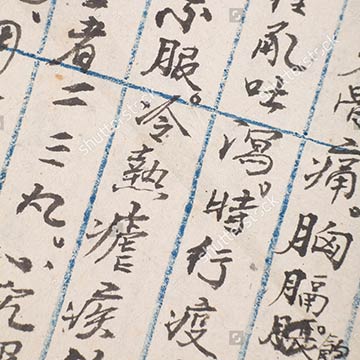 骨痛。胸膈
吐瀉。時行疫
不服。冷熱瘧疾
者二三丸。小兒
shutterstock